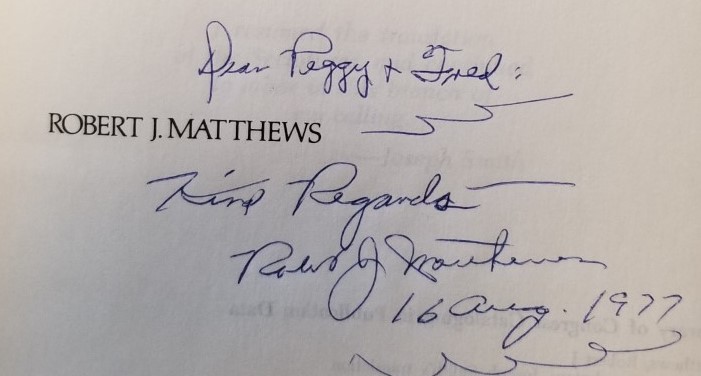 Dear Peggy + Fred:
ROBERT J. MATTHEWS
Kind Regards
Robert J Matthews
16 Aug. 1977